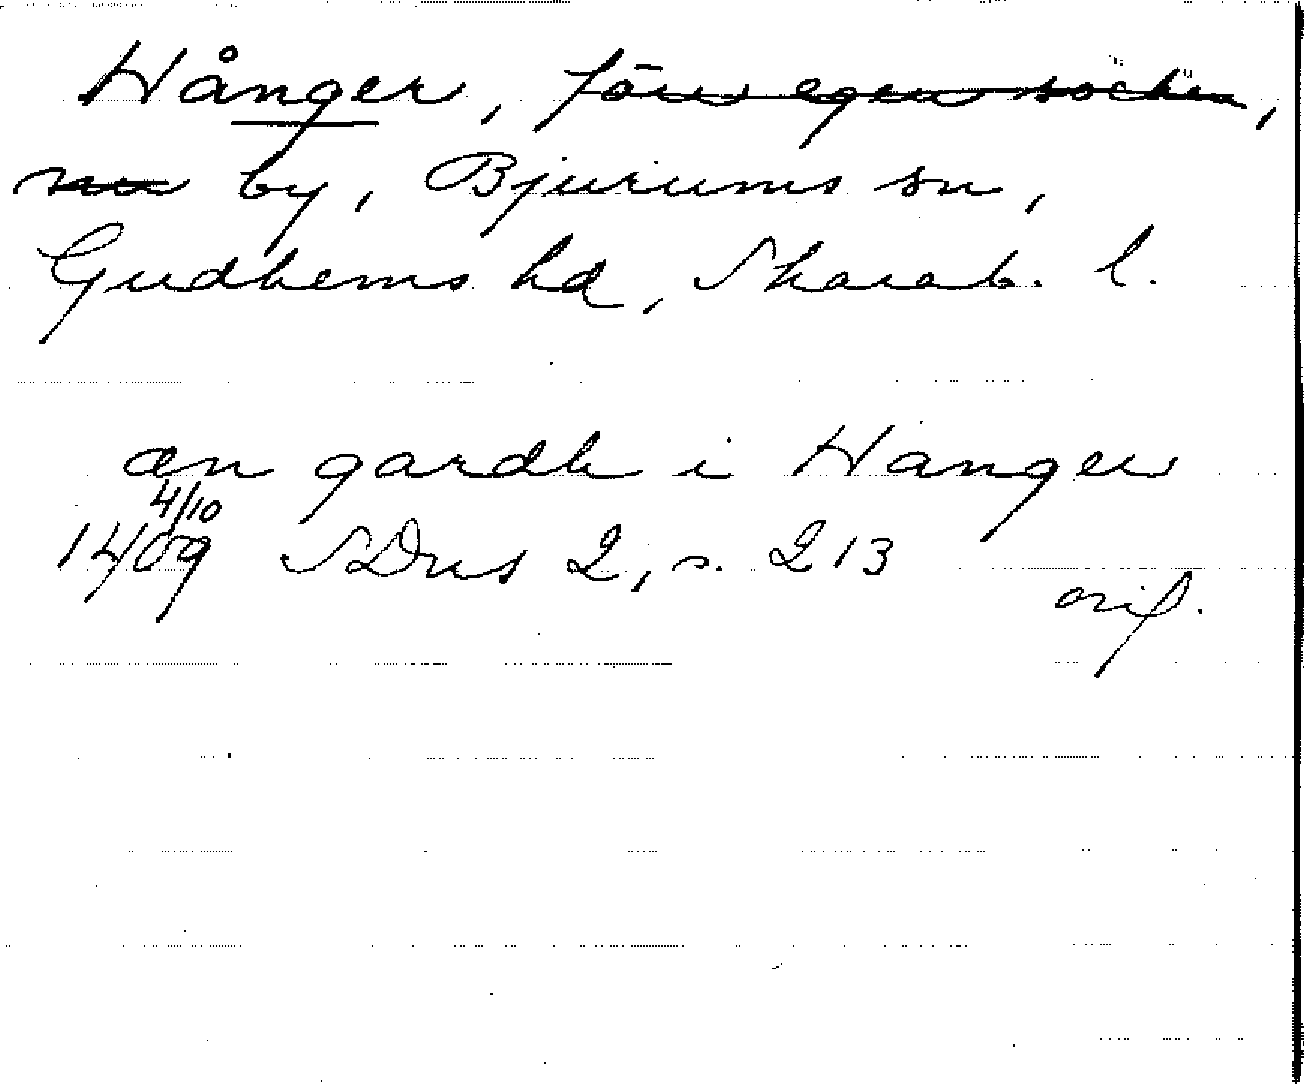 Hånger, förr egen socken,
nu by, Bjurums sn,
Gudhems hd, Skarab. l.
æn gardh i Hanger
4/10
1409 SDns 2, s. 213
orig.